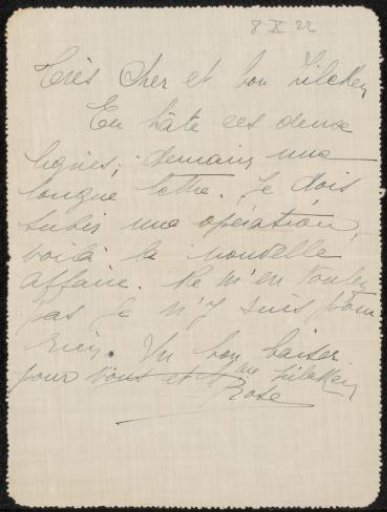 8 X 22
Très Cher et bon Zilcken
En hâte ces deux
lignes; demain, une
longue lettre. Je dois
subir une opération,
voilà la nouvelle
affaire. Ne m'en voulez
pas je n'y suis pour
rien. Un bon baiser
pour vous et Mme Zilcken
Rose